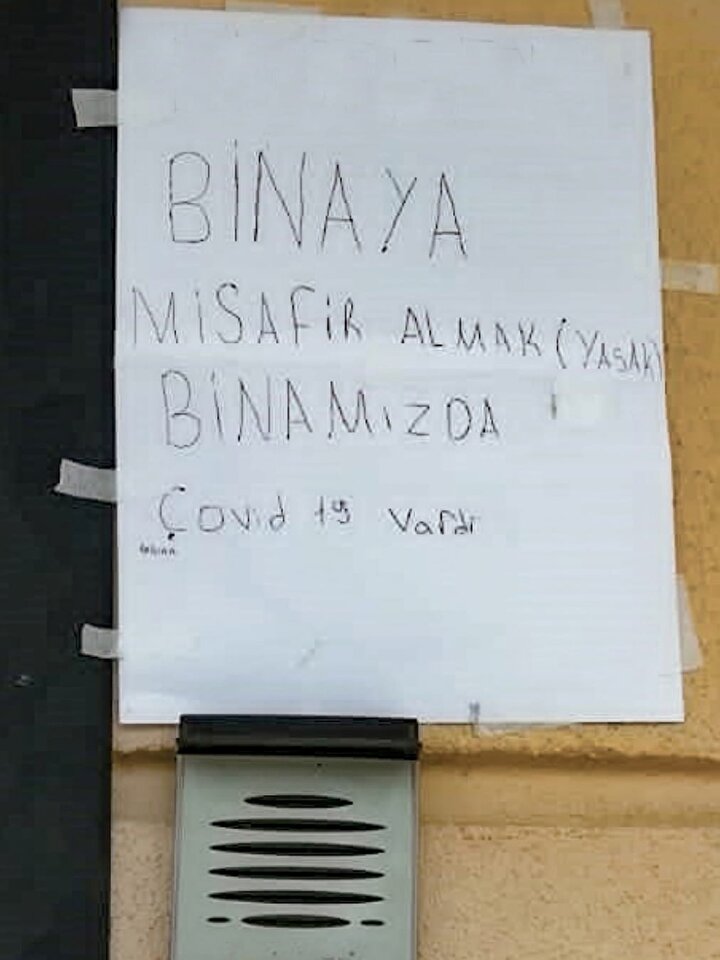 BİNAYA
MİSAFİR ALMAK (YASAK)
BİNAMIZDA
Covid 19 vardı